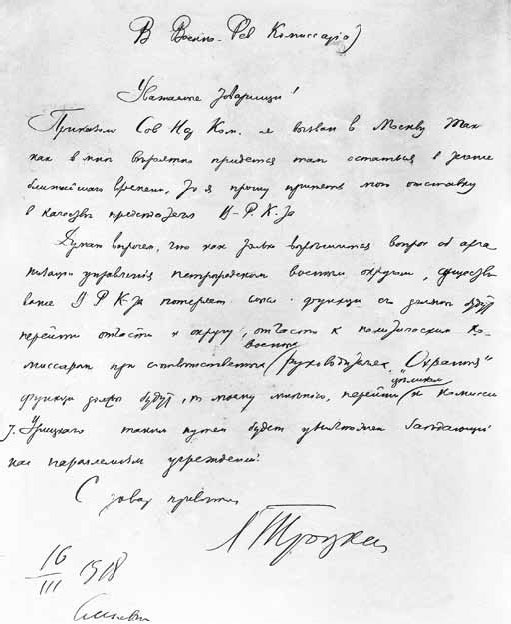 В Военно-Рев Комиссариат
Уважаемые товарищи!
Приказом Сов Нар Ком. я вызван в Москву Так
как мне вероятно придется там остаться в течение
ближайшего времени, то я прошу принять мою отставку
в качестве председателя В-Р.К-та
Думаю впрочем, что как только вопрос об орга
низации управления петроградским военным округом, существо
вание В Р К-та потеряет смысл. функции его должны будут
перейти отчасти к округу, отчасти к политическим ко-
военных
миссарам при руководителях, "Охранные"
целиком
функции должны будут, по моему мнению, перейти к Комиссии
т. Урицкого таким путем будет уничтожен
параллелизм учреждений.
С товар приветом
Л Троцкий
16
III 1918